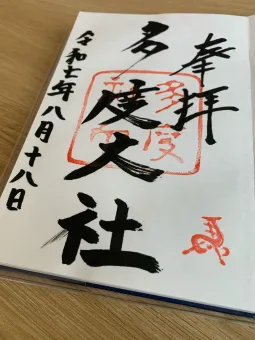 奉拝
多度大社
令和七年八月十八日